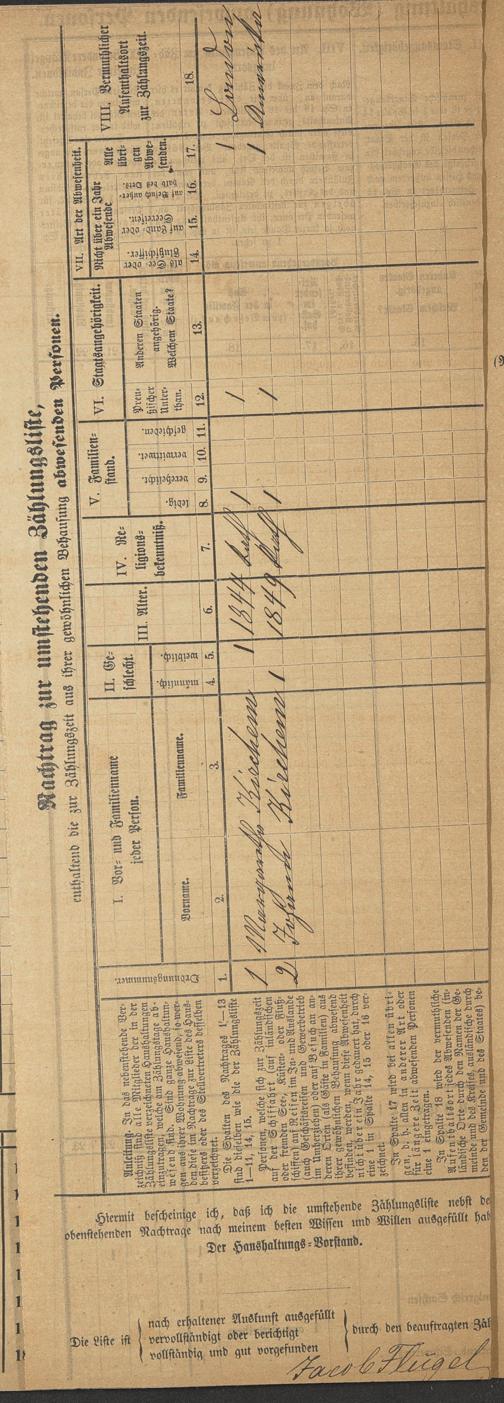 Nachtrag zur umstehenden Zählungsliste,
enthaltend die zur Zählungszeit aus ihrer gewöhnlichen Behausung abwesenden Personen.
Anleitung. In das nebenstehende Ver-
zeichniß sind alle Mitglieder der in der
Zählungsliste verzeichneten Haushaltungen
einzutragen, welche am Zählungstage ab-
wesend sind.
Die Spalten des Nachtrages 1–13
sind dieselben wie die der Zählungsliste
1–11, 14, 15.
Personen, welche sich zur Zählungszeit
auf der Schiffahrt (auf inländischen
oder fremden See-, Küsten- oder Fluß-
schiffen), auf Reisen im In- und Auslande
(auch Geschäftsreisen und Gewerbebetrieb
im Umherziehen) oder auf Besuch an an-
deren Orten (als Gäste in Familien) aus
ihrer gewöhnlichen Behausung abwesend
befinden, werden, wenn diese Abwesenheit
nicht über ein Jahr gedauert hat, durch
eine 1 in Spalte 14, 15 oder 16 ver-
zeichnet.
In Spalte 17 wird bei allen übri-
gen, d. h. allen in anderer Art oder
für längere Zeit abwesenden Personen
eine 1 eingetragen.
In Spalte 18 wird der vermuthliche
Aufenthaltsort der Abwesenden (in-
ländische Orte durch den Namen der Ge-
meinde und des Kreises, ausländische durch
den der Gemeinde und des Staates) be-
Ordnungsnummer.
I. Vor- und Familienname
jeder Person.
Vorname.
Familienname.
II. Ge-
schlecht.
männlich.
weiblich.
III. Alter.
IV. Re-
ligions-
bekenntniß.
V. Familien-
stand.
ledig.
verehelicht.
verwittwet.
geschieden.
VI. Staatsangehörigkeit.
Preu-
ßischer
Unter-
than.
Anderen Staaten
angehörig.
Welchem Staate?
VII. Art der Abwesenheit.
Nicht über ein Jahr
Abwesende
als See- oder
Flußschiffer.
auf Land- oder
Seereisen.
auf Besuch außer-
halb des Orts.
Alle
übri-
gen
Abwe-
senden.
VIII. Vermuthlicher
Aufenthaltsort
zur Zählungszeit.
1. 2. 3. 4. 5. 6. 7. 8. 9. 10. 11. 12. 13. 14. 15. 16. 17. 18.
1 Margaretha Kirchem 1 1844 kath 1 1 1 London
2 Johann Kirchem 1 1849 kath 1 1 1 Amerika
Hiermit bescheinige ich, daß ich die umstehende Zählungsliste nebst de
obenstehenden Nachtrage nach meinem besten Wissen und Willen ausgefüllt hab
Der Haushaltungs-Vorstand.
Die Liste ist
nach erhaltener Auskunft ausgefüllt
vervollständigt oder berichtigt
vollständig und gut vorgefunden
durch den beauftragten Zäl
Jacob Flügel